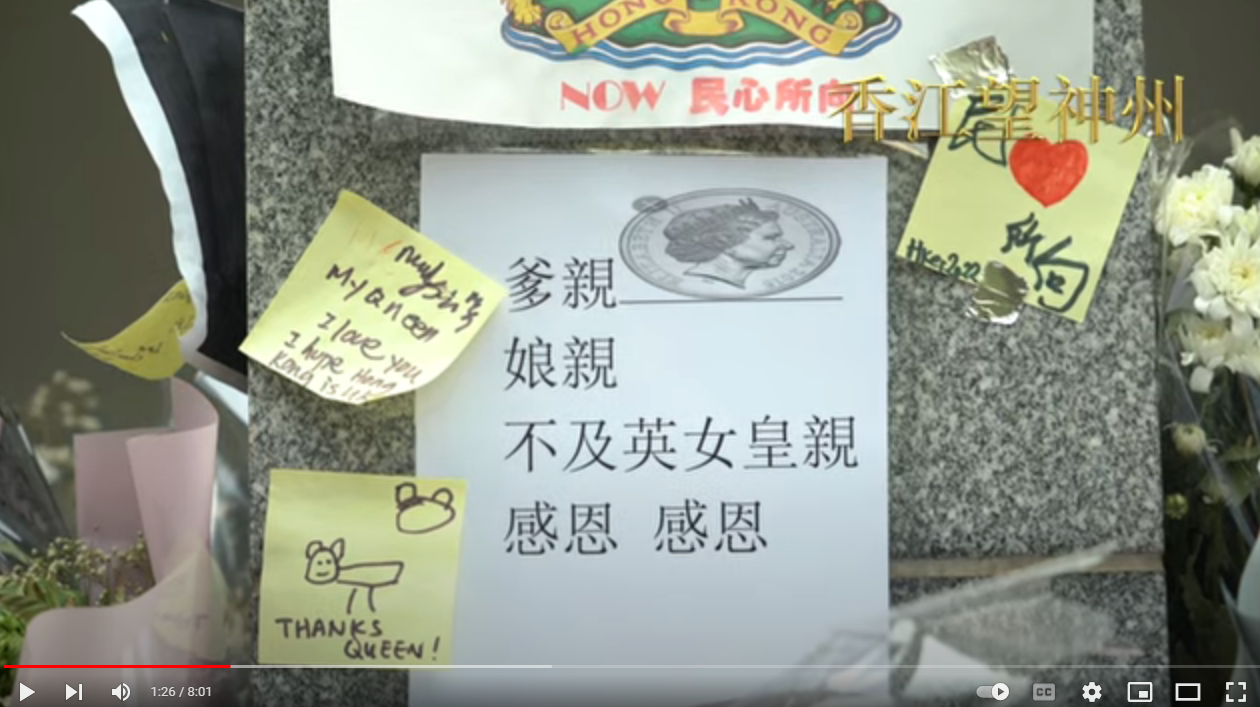 HONG KONG
NOW 民心所向
香江望神州
所向
HKer2022
My Queen
I love you
I hope Hong
Kong is
爹親
娘親
不及英女皇親
感恩 感恩
THANKS
QUEEN!
1:26 / 8:01
CC